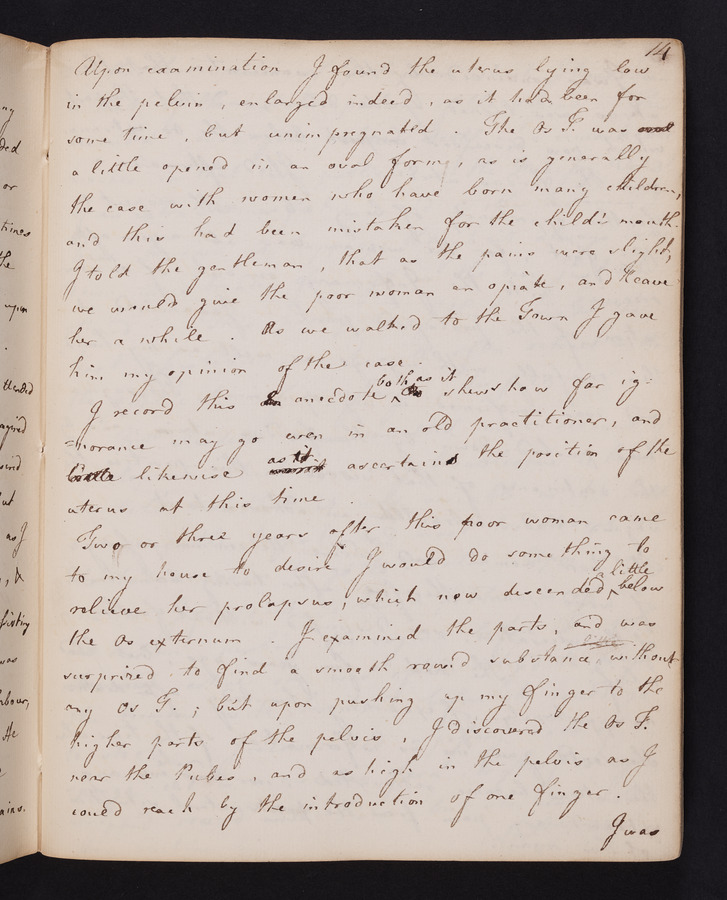 14
Upon examination I found the uterus lying low
in the pelvis, enlarged indeed, as it had been for
some time, but unimpregnated. The Os T. was
a little opened in an oval form, as is generally
the case with women who have born many children,
and this had been mistaken for the child's mouth.
I told the gentleman, that as the pains were slight,
we would give the poor woman an opiate, and leave
her a while. As we walked to the Town I gave
him my opinion of the case.
I record this anecdote both as it shews how far ig:
=norance may go even in an old practitioner, and
likewise as it ascertains the position of the
uterus at this time.
Two or three years after this poor woman came
to my house to desire I would do something to
relieve her prolapsus, which now descended little below
the Os externum. I examined the parts, and was
surprized to find a smooth round substance, without
any Os T.; but upon pushing up my finger to the
higher parts of the pelvis, I discovered the Os T.
near the Pubes, and as high in the pelvis as I
could reach by the introduction of one finger.
I was
ny
ded
or
times
the
upon
ttended
ut
as I
, &
was
He
ains.